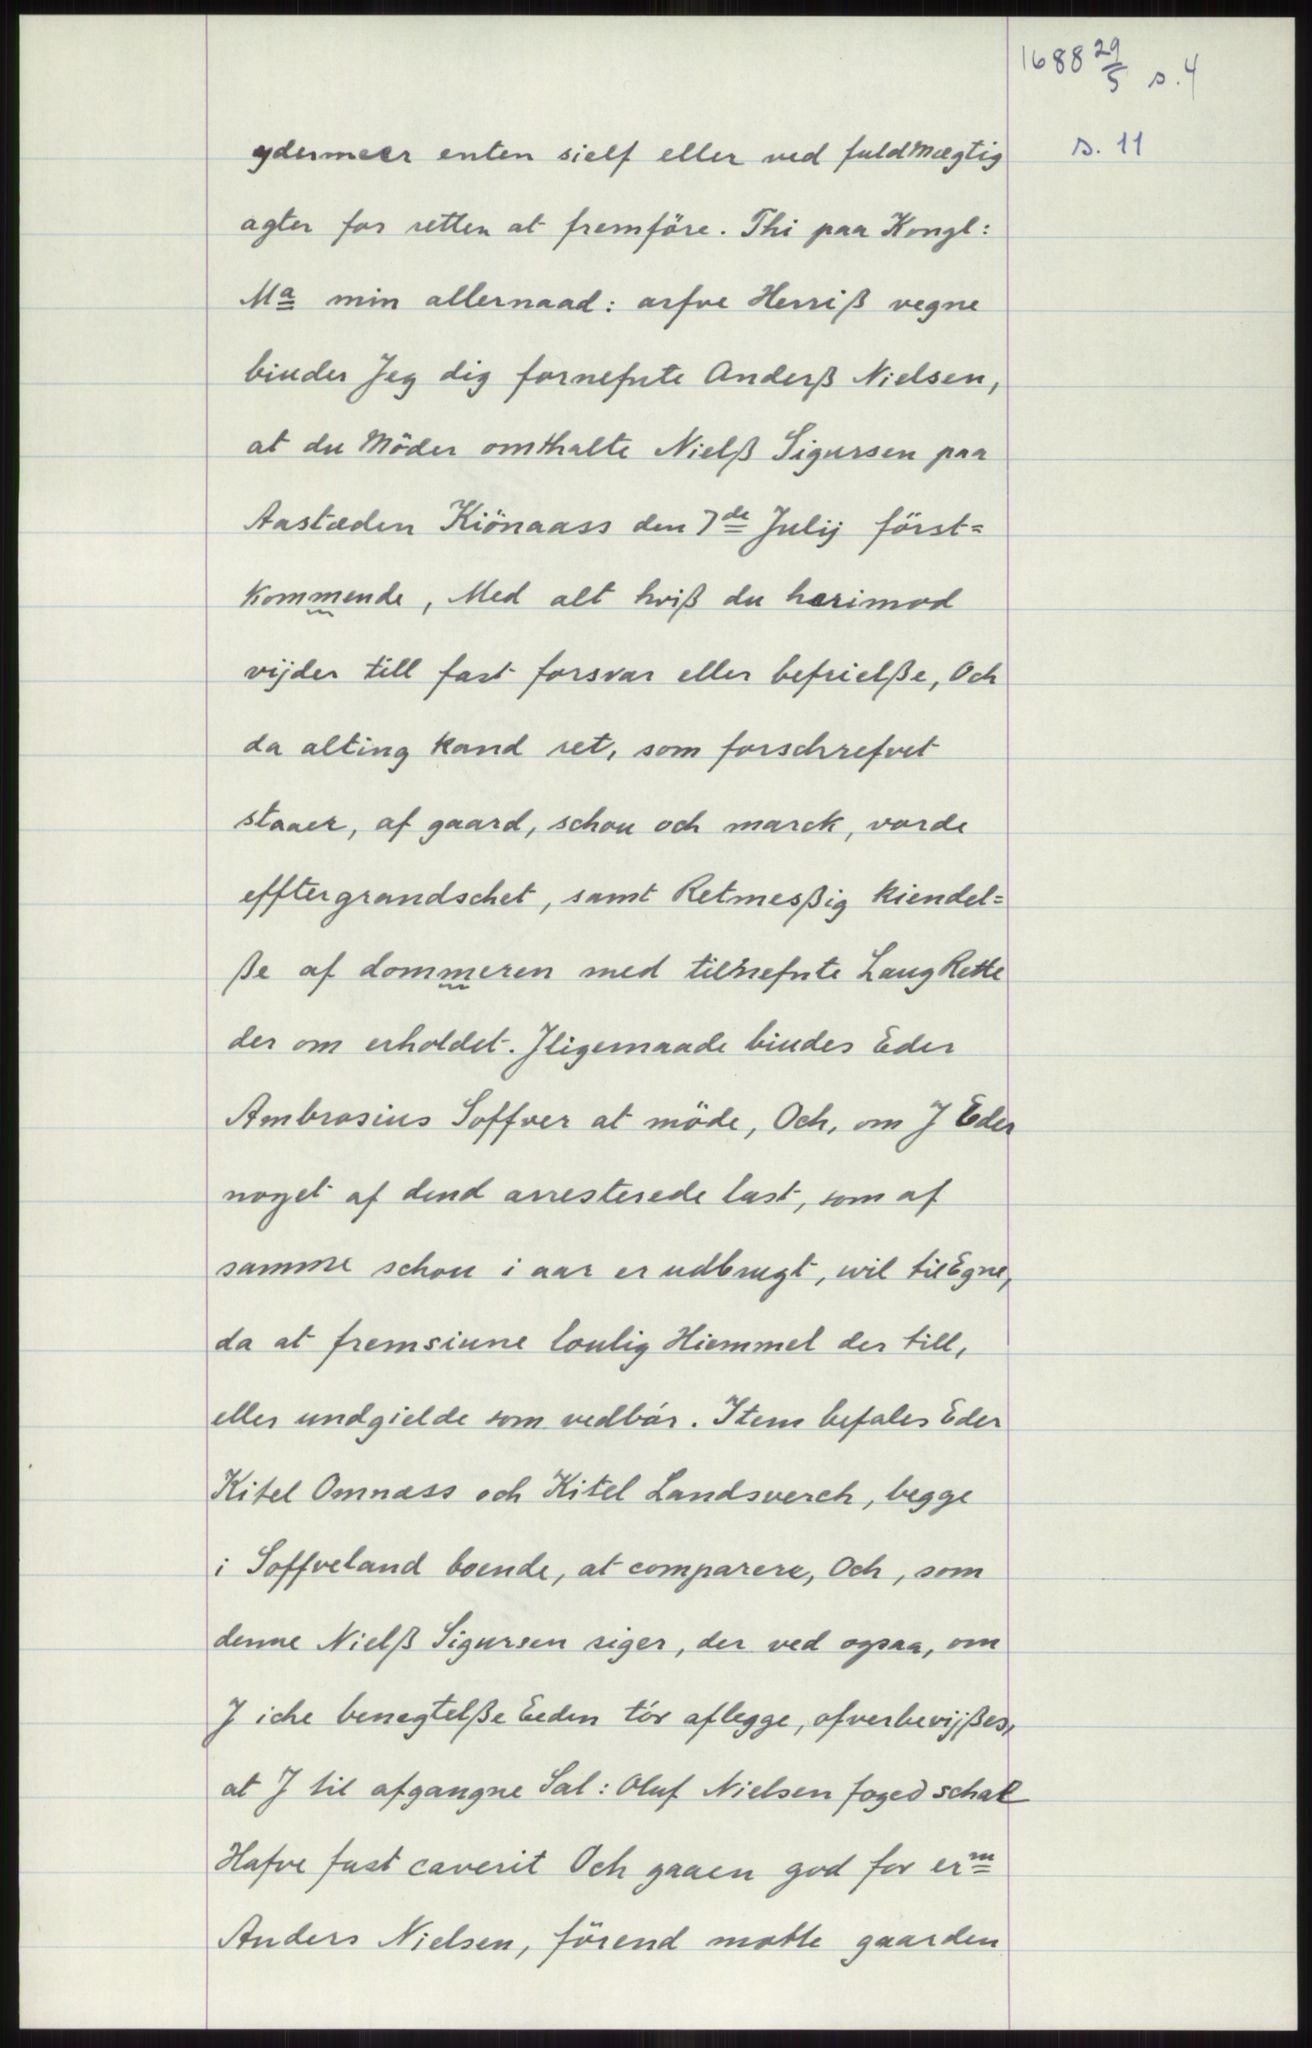 1688 29/5 s. 4
s. 11
ydermeer enten sielf eller ved fuldmægtig
agter for retten at fremföre. Thi paa Kongl:
Ma min allernaad: arfve Herriß vegne
biuder Jeg dig fornefnte Anderß Nielsen,
at du Möder omthalte Nielß Sigursen paa
Aastæden Kiönaass den 7de Julij först=
kommende, Med alt hviß du herimod
vijder till fast forsvar eller befrielße, Och
da alting kand ret, som forschrefvet
staaer, af gaard, schou och marck, vorde
efftergrandschet, samt Retmeßig kiendel=
ße af dommeren med tilnefnte LaugRette
der om erholdet. Jligemaade biudes Eder
Ambrosius Soffver at möde, Och, om J Eder
noget af dend arresterede last, som af
samme schou i aar er udbrugt, wil tilEgne,
da at fremsiune loulig Hiemmel der till,
eller undgielde som vedbör. Item befales Eder
Kitel Omnæss och Kitel Landsverch, begge
i Soffveland boende, at comparere, Och, som
denne Nielß Sigursen siger, der ved ogsaa, om
J iche benegtelße Eeden tör aflegge, ofverbevijßes,
at J til afgangne Sal: Oluf Nielsen foged schal
Hafve fast caverit Och gaaen god for erm
Anders Nielsen, förend motte gaarden